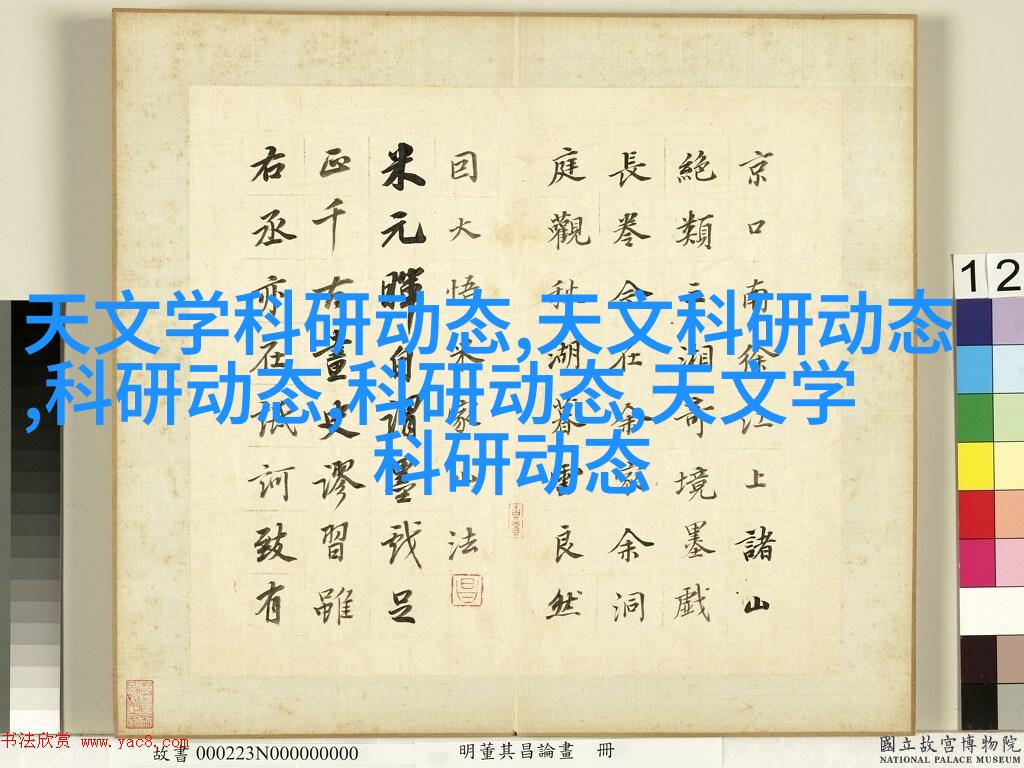 天文学科研动态,天文科研动态
,科研动态,科研动态,天文学
科研动态
京口南徐江上諸山
絶類三湘奇境墨戲
長巻今在余家余洞
庭觀秋湖暮雲良然
因大悟米家山法
米元暉自謂墨戲足
正千古畫史謬習雖
右丞亦在詆訶致有
12
書法欣赏 www.yac8.com
故書 000223N000000000
明董其昌論畫 冊
國立故宮博物院
NATIONAL PALACE MUSEUM